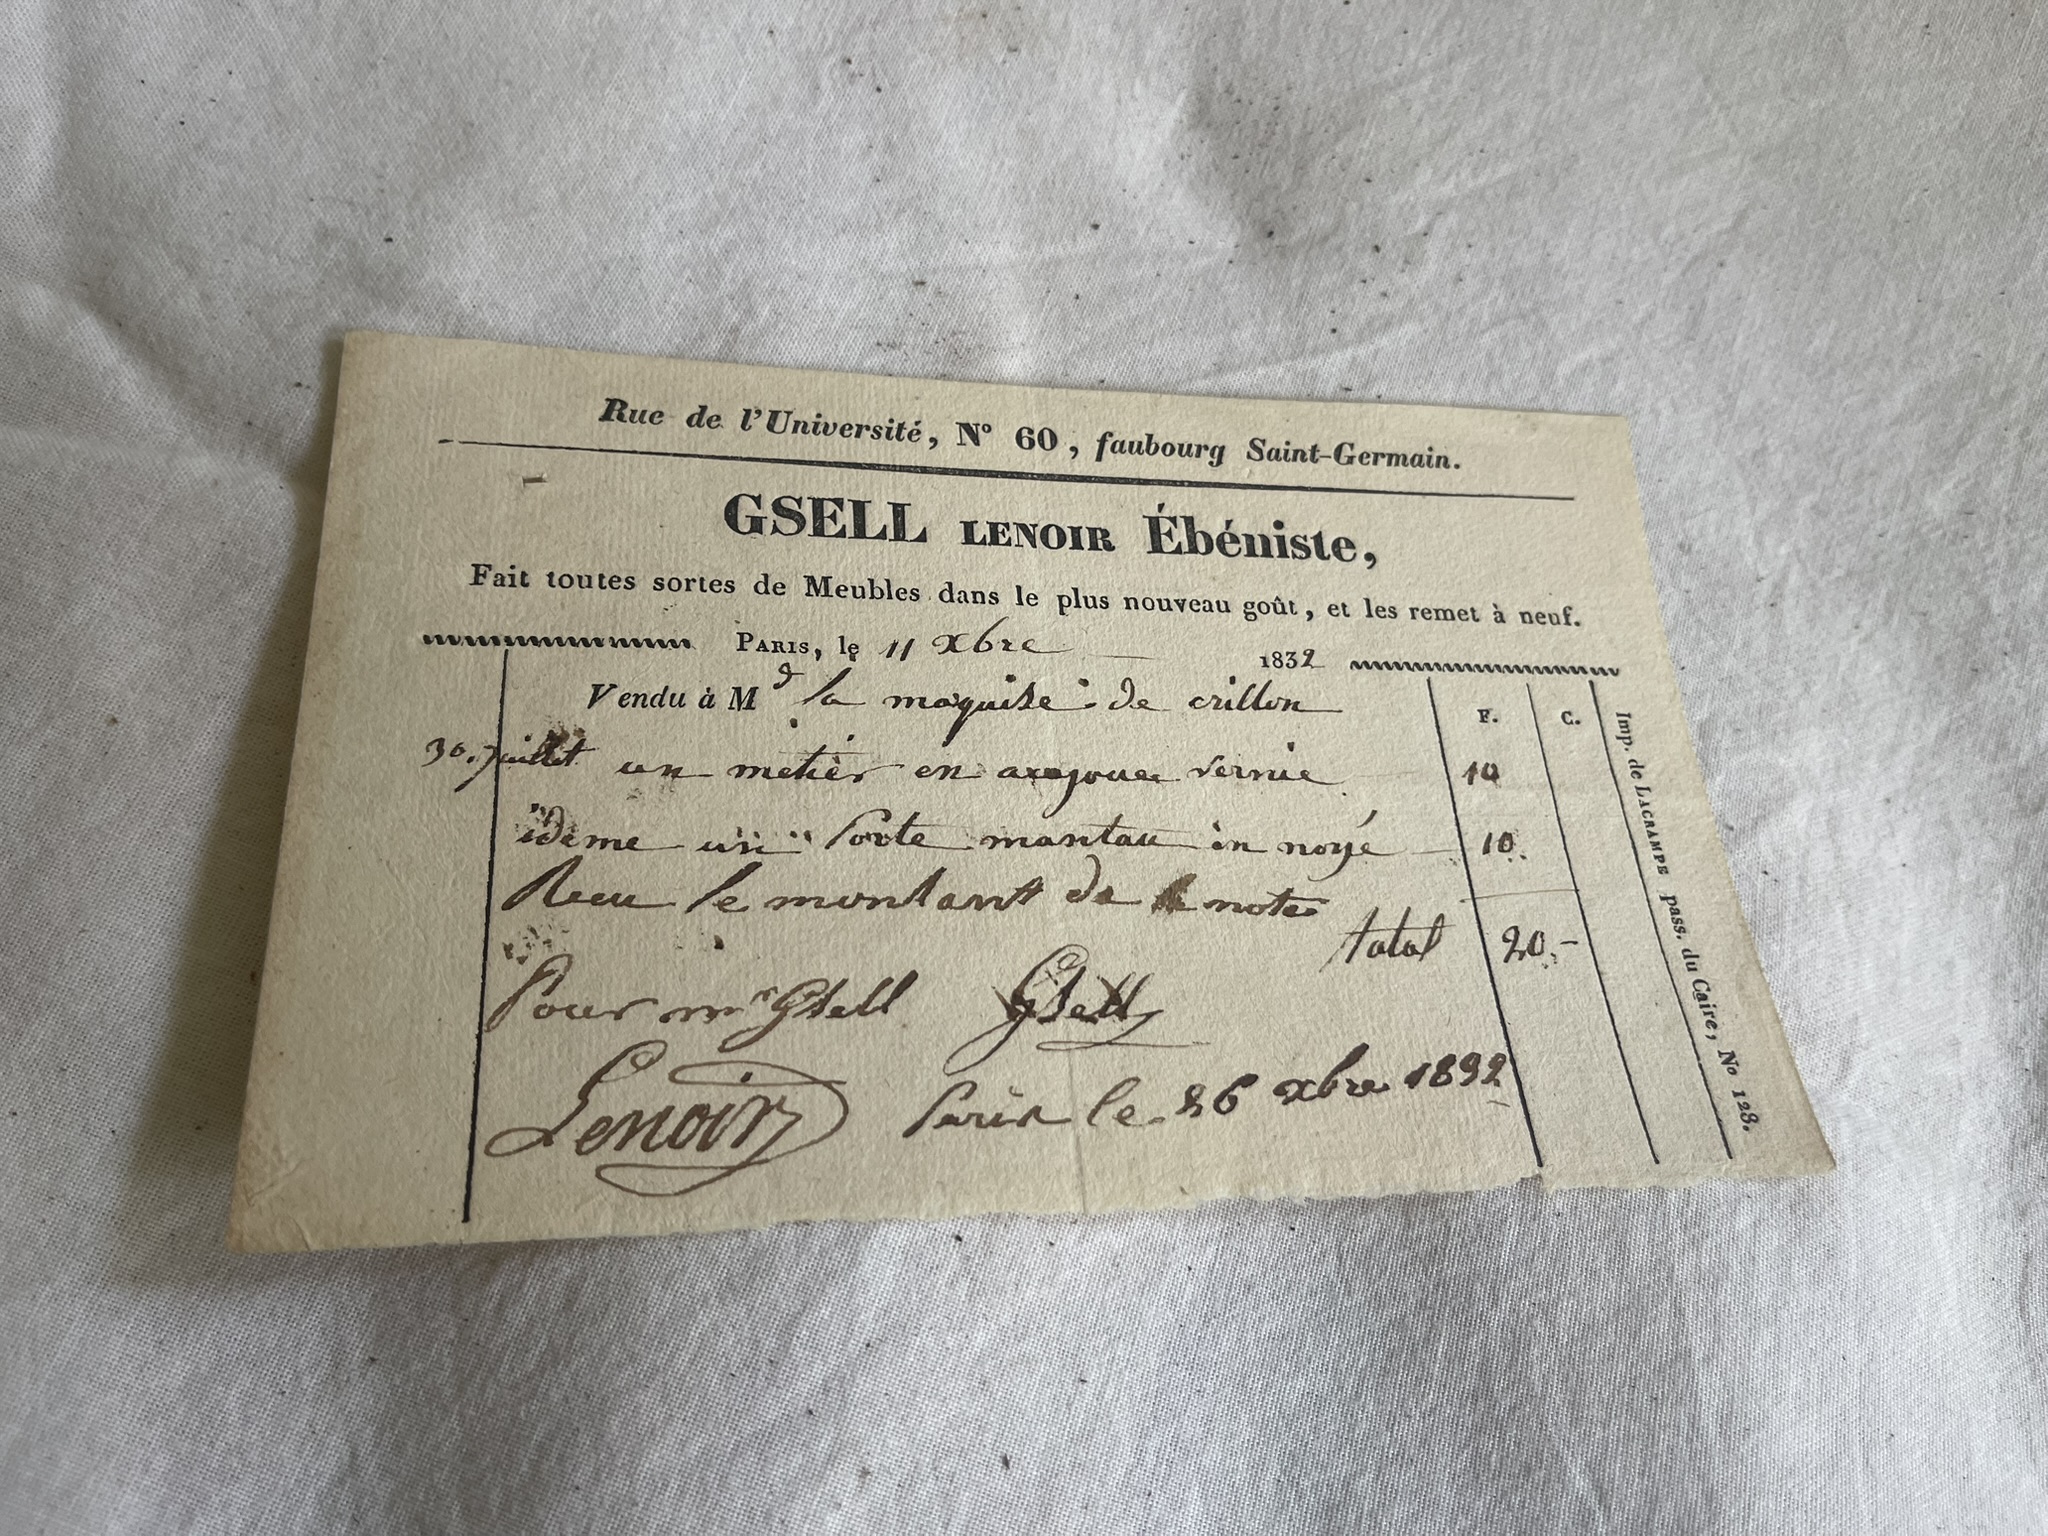 Rue de l'Université, N° 60, faubourg Saint-Germain.
GSELL LENOIR Ébéniste,
Fait toutes sortes de Meubles dans le plus nouveau goût, et les remet à neuf.
PARIS, le 11 xbre 1832
Vendu à Md la maquise de crillon
F. C.
30. juillet un metier en vernie 10
ideme un Porte mantau en noyé 10.
Recu le montant de la note
total 20.-
Pour mr Gsell Gsell
Lenoir Paris le 26 xbre 1832
Imp. de LACRAMPE pass. du Caire, No 123.